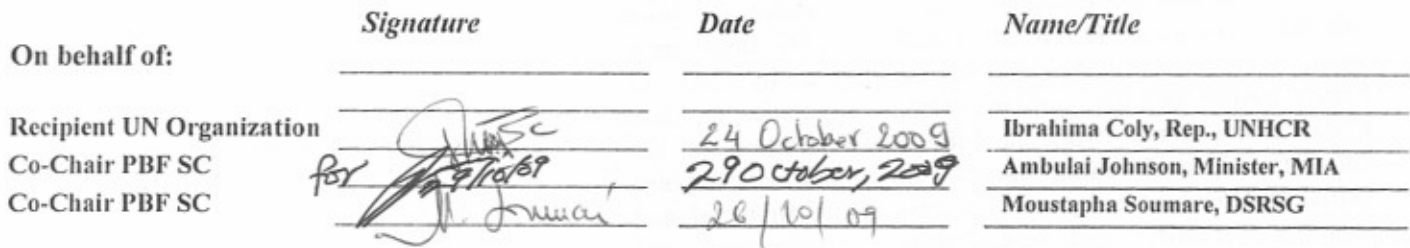 Signature Date Name/Title
On behalf of:
Recipient UN Organization 24 October 2009 Ibrahima Coly, Rep., UNHCR
Co-Chair PBF SC for 29/10/09 29 October, 2009 Ambulai Johnson, Minister, MIA
Co-Chair PBF SC 26/10/09 Moustapha Soumare, DSRSG